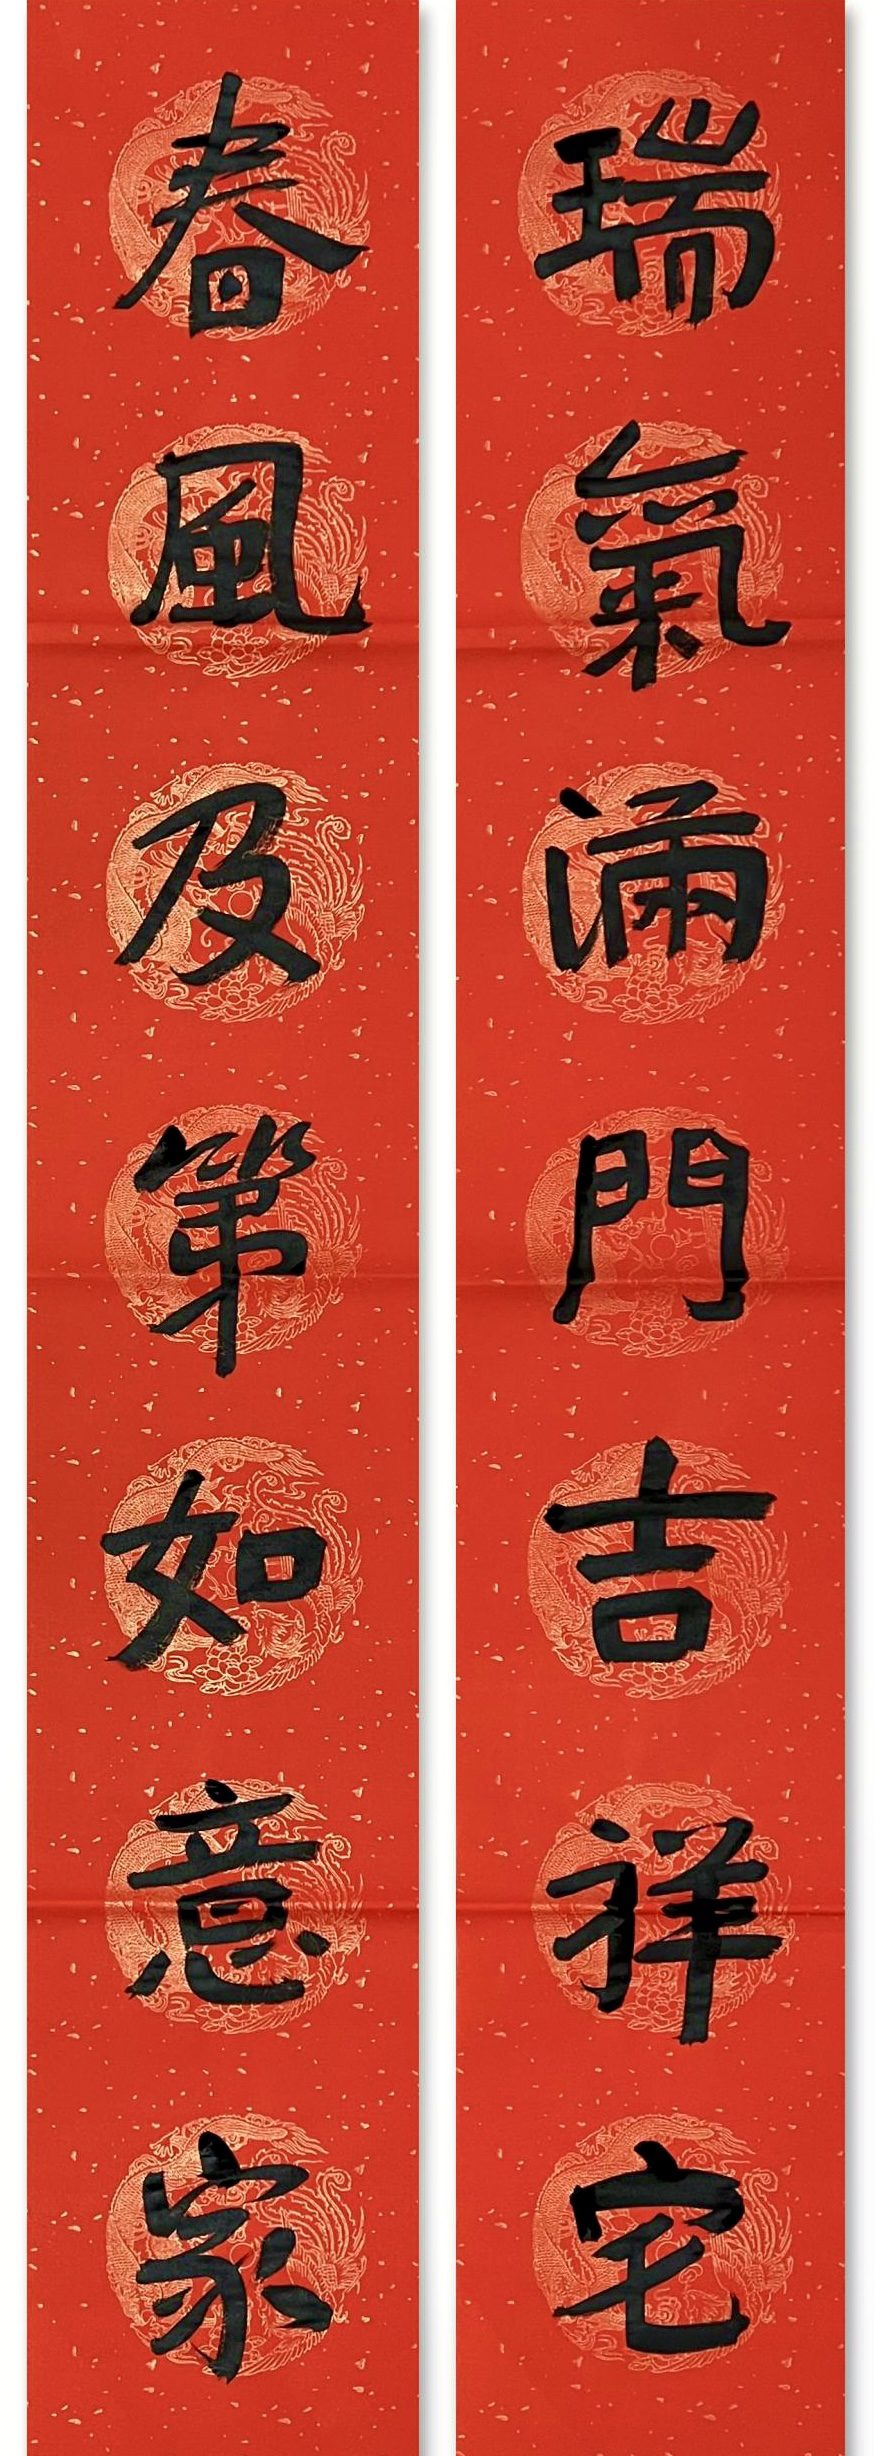 瑞氣滿門吉祥宅
春風及第如意家